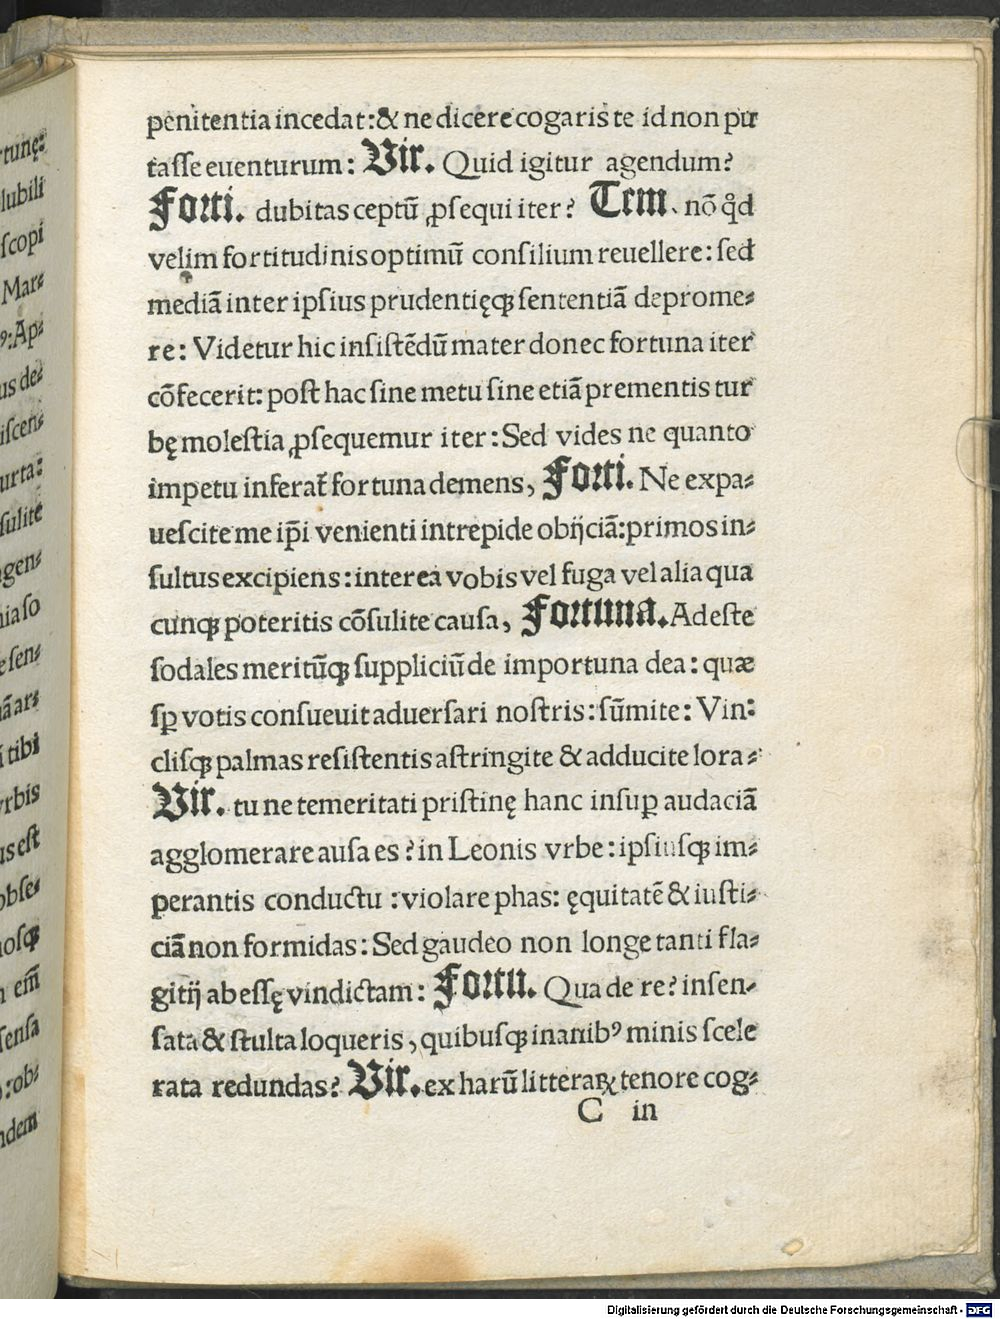 penitentia incedat: & ne dicere cogaris te id non pu
tasse euenturum: Vir. Quid igitur agendum?
Forti. dubitas ceptū ꝓsequi iter? Tem. nō qd̄
velim fortitudinis optimū consilium reuellere: sed
mediā inter ipsius prudentięqꝫ sententiā deprome⸗
re: Videtur hic insistēdū mater donec fortuna iter
cōfecerit: post hac sine metu sine etiā prementis tur
bę molestia ꝓsequemur iter: Sed vides ne quanto
impetu inferat̄ fortuna demens, Forti. Ne expa⸗
uescite me ip̄i venienti intrepide obijciā: primos in⸗
sultus excipiens: interea vobis vel fuga vel alia qua
cunqꝫ poteritis cōsulite causa, Fortuna. Adeste
sodales meritūqꝫ suppliciū de importuna dea: quæ
sꝑ votis consueuit aduersari nostris: sūmite: Vin:
clisqꝫ palmas resistentis astringite & adducite lora⸗
Vir. tu ne temeritati pristinę hanc insuꝑ audaciā
agglomerare ausa es? in Leonis vrbe: ipsiusqꝫ im⸗
perantis conductu: violare phas: ęquitatē & iusti⸗
ciā non formidas: Sed gaudeo non longe tanti fla⸗
gitij abessę vindictam: Fortu. Qua de re? insen⸗
sata & stulta loqueris, quibusqꝫ inanibꝰ minis scele
rata redundas? Vir. ex harū litteraꝝ tenore cog⸗
C iii
rtunę:
lubili
scopi
Mar⸗
ꝰ: Ap⸗
us de⸗
iscen⸗
urta:
sulite
gen⸗
nia so
e sen⸗
ā ar⸗
tibi
vrbis
us est
obse⸗
osqꝫ
em̄
sensa
: ob⸗
ndem
Digitalisierung gefördert durch die Deutsche Forschungsgemeinschaft - DFG